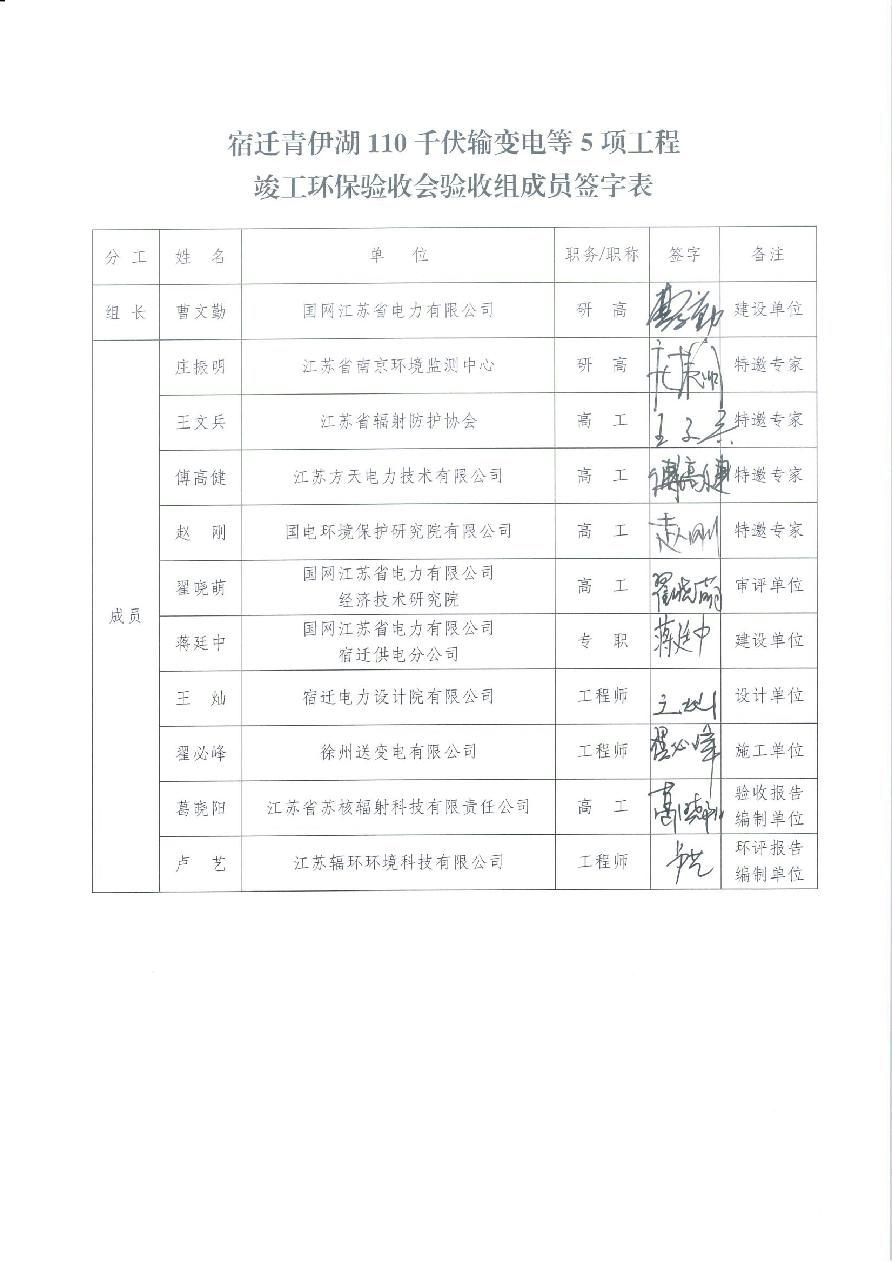 宿迁青伊湖 110 千伏输变电等 5 项工程
竣工环保验收会验收组成员签字表
分 工 姓 名 单 位 职务/职称 签字 备注
组 长 曹文勤 国网江苏省电力有限公司 研 高 曹文勤 建设单位
成员
庄振明 江苏省南京环境监测中心 研 高 庄振明 特邀专家
王文兵 江苏省辐射防护协会 高 工 王文兵 特邀专家
傅高健 江苏方天电力技术有限公司 高 工 傅高健 特邀专家
赵 刚 国电环境保护研究院有限公司 高 工 赵刚 特邀专家
翟晓萌 国网江苏省电力有限公司
经济技术研究院 高 工 翟晓萌 审评单位
蒋廷中 国网江苏省电力有限公司
宿迁供电分公司 专 职 蒋廷中 建设单位
王 灿 宿迁电力设计院有限公司 工程师 王灿 设计单位
翟必峰 徐州送变电有限公司 工程师 翟必峰 施工单位
葛晓阳 江苏省苏核辐射科技有限责任公司 高 工 葛晓阳 验收报告
编制单位
卢 艺 江苏辐环环境科技有限公司 工程师 卢艺 环评报告
编制单位